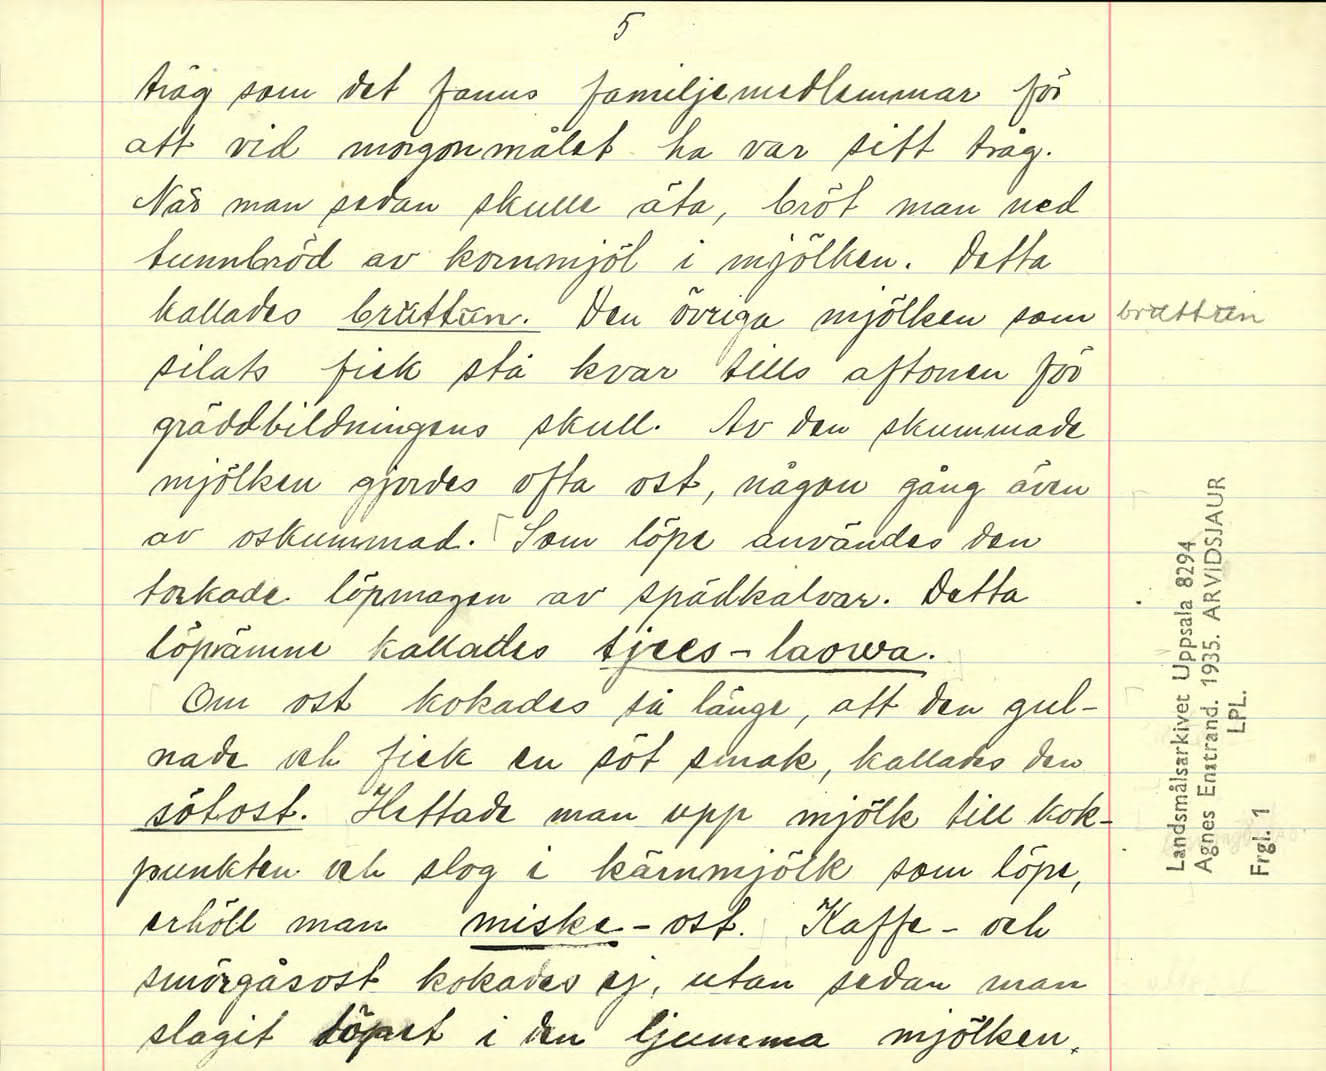 5
tråg som det fanns familjemedlemmar för
att vid morgonmålet ha var sitt tråg.
När man sedan skulle äta, bröt man ned
tunnbröd av kornmjöl i mjölken. Detta
kallades brüttün. Den övriga mjölken som
brüttün
silats fick stå kvar tills aftonen för
gräddbildningens skull. Av den skummade
mjölken gjordes ofta ost, någon gång även
av oskummad. Som löpe användes den
torkade löpmagen av spädkalvar. Detta
löpämne kallades tjees-laowa.
Om ost kokades så länge, att den gul-
nade och fick en söt smak, kallades den
sötost. Hettade man upp mjölk till kok-
punkten och slog i kärnmjölk som löpe,
erhöll man miske-ost. Kaffe- och
smörgåsost kokades ej, utan sedan man
slagit löpet i den ljumma mjölken,
Landsmålsarkivet Uppsala 8294
Agnes Enstrand. 1935. ARVIDSJAUR
LPL.
Frgl. 1